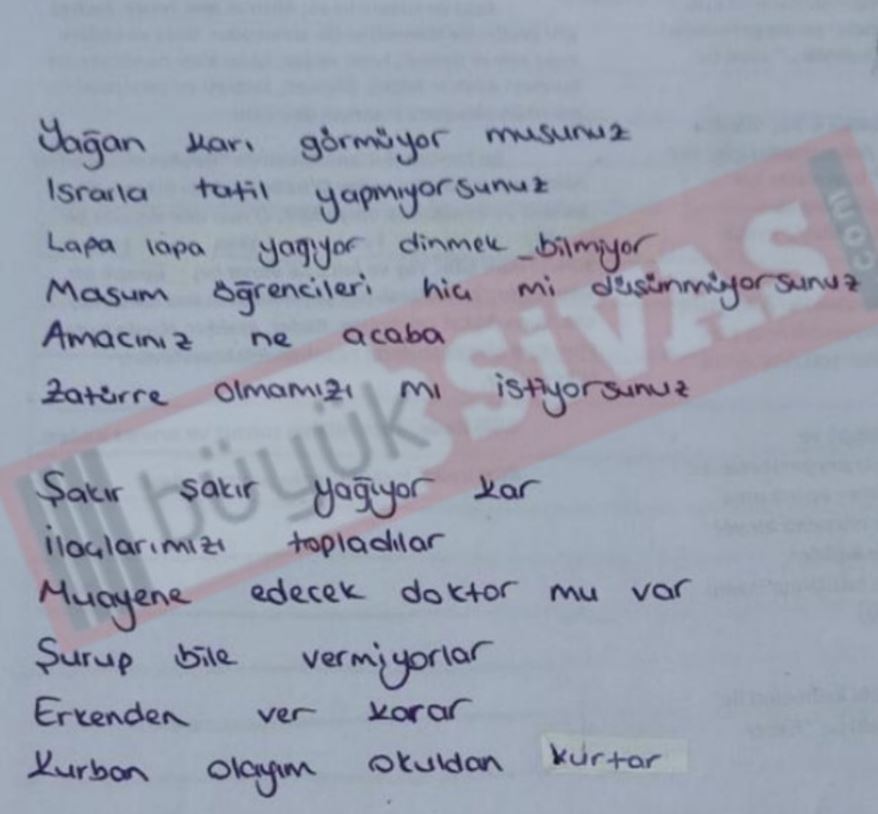 Yağan karı görmüyor musunuz
Israrla tatil yapmıyorsunuz
Lapa lapa yağıyor dinmek bilmiyor
Masum öğrencileri hiç mi düşünmüyorsunuz
Amacınız ne acaba
Zatürre olmamızı mı istiyorsunuz
Şakır şakır yağıyor kar
İlaçlarımızı topladılar
Muayene edecek doktor mu var
Şurup bile vermiyorlar
Erkenden ver karar
Kurban olayım okuldan kurtar
büyük SİVAS .COM